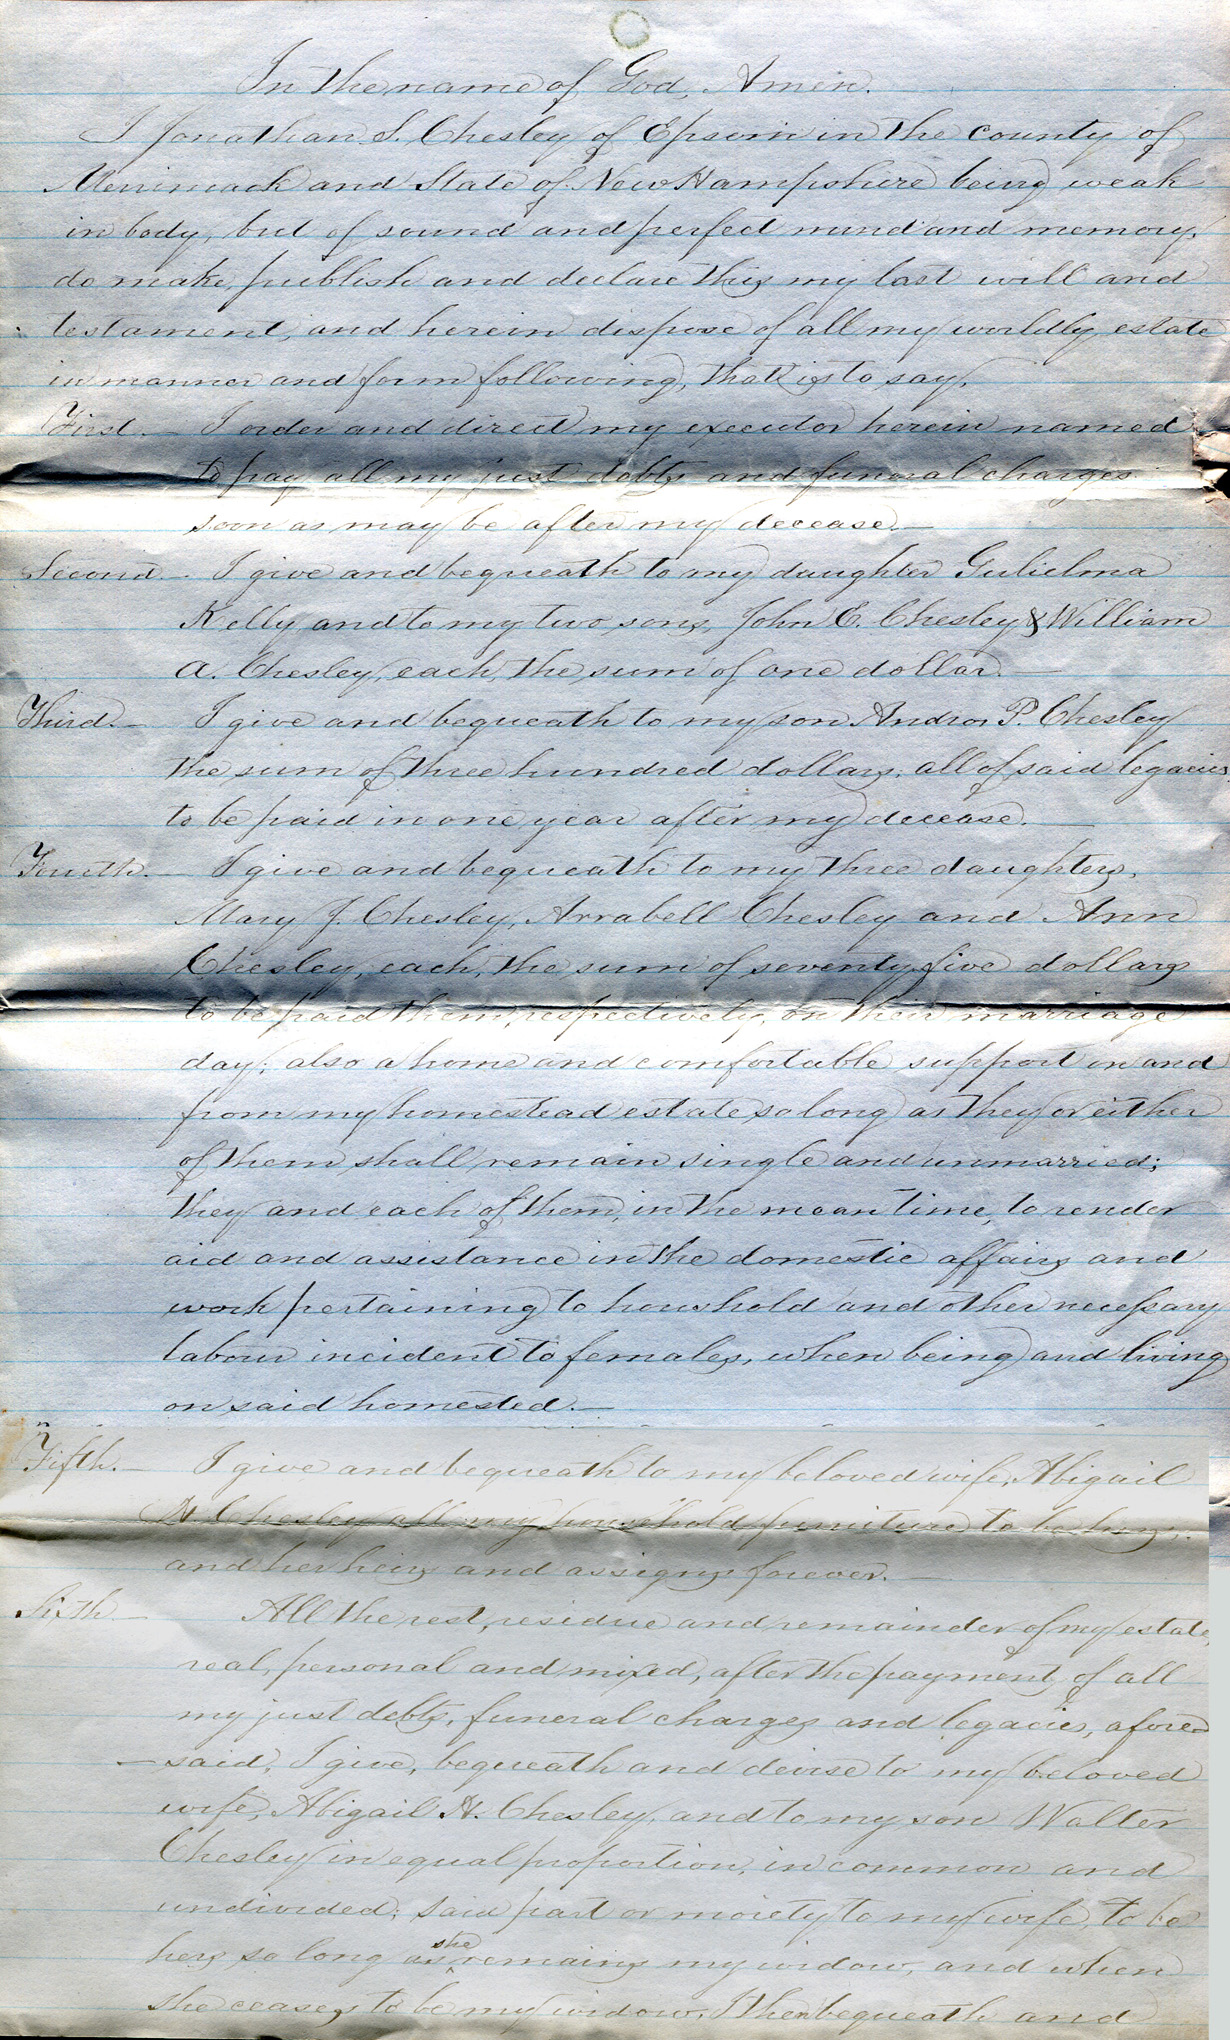 In the name of God, Amen.
I Jonathan S. Chesley of Epsom in the County of
Merrimack and State of New Hampshire being weak
in body, but of sound and perfect mind and memory,
do make, publish and declare this my last will and
testament, and herein dispose of all my worldly estate
in manner and form following, that is to say,
First.— I order and direct my executor herein named
to pay all my just debts and funeral charges
soon as may be after my decease.—
Second.— I give and bequeath to my daughter Gulielma
Kelly and to my two sons, John E. Chesley & William
A. Chesley, each, the sum of one dollar.—
Third.— I give and bequeath to my son Andros P. Chesley
the sum of three hundred dollars, all of said legacies
to be paid in one year after my decease.—
Fourth.— I give and bequeath to my three daughters,
Mary J. Chesley, Arrabell Chesley and Ann
Chesley, each, the sum of seventy five dollars
to be paid them, respectively, on their marriage
day; also a home and comfortable support in and
from my homestead estate so long as they or either
of them shall remain single and unmarried;
they and each of them, in the mean time, to render
aid and assistance in the domestic affairs and
work pertaining to household and other necessary
labour incident to females, when being and living
on said homested.—
Fifth.— I give and bequeath to my beloved wife, Abigail
H. Chesley all my household furniture to be hers,
and her heirs and assigns forever.—
Sixth— All the rest, residue and remainder of my estate,
real, personal and mixed, after the payment of all
my just debts, funeral charges and legacies, afore-
—said, I give, bequeath and devise to my beloved
wife, Abigail H. Chesley, and to my son Walter
Chesley in equal proportion, in common and
undivided; said part or moiety to my wife, to be
hers so long as she remains my widow, and when
she ceases to be my widow, I then bequeath and